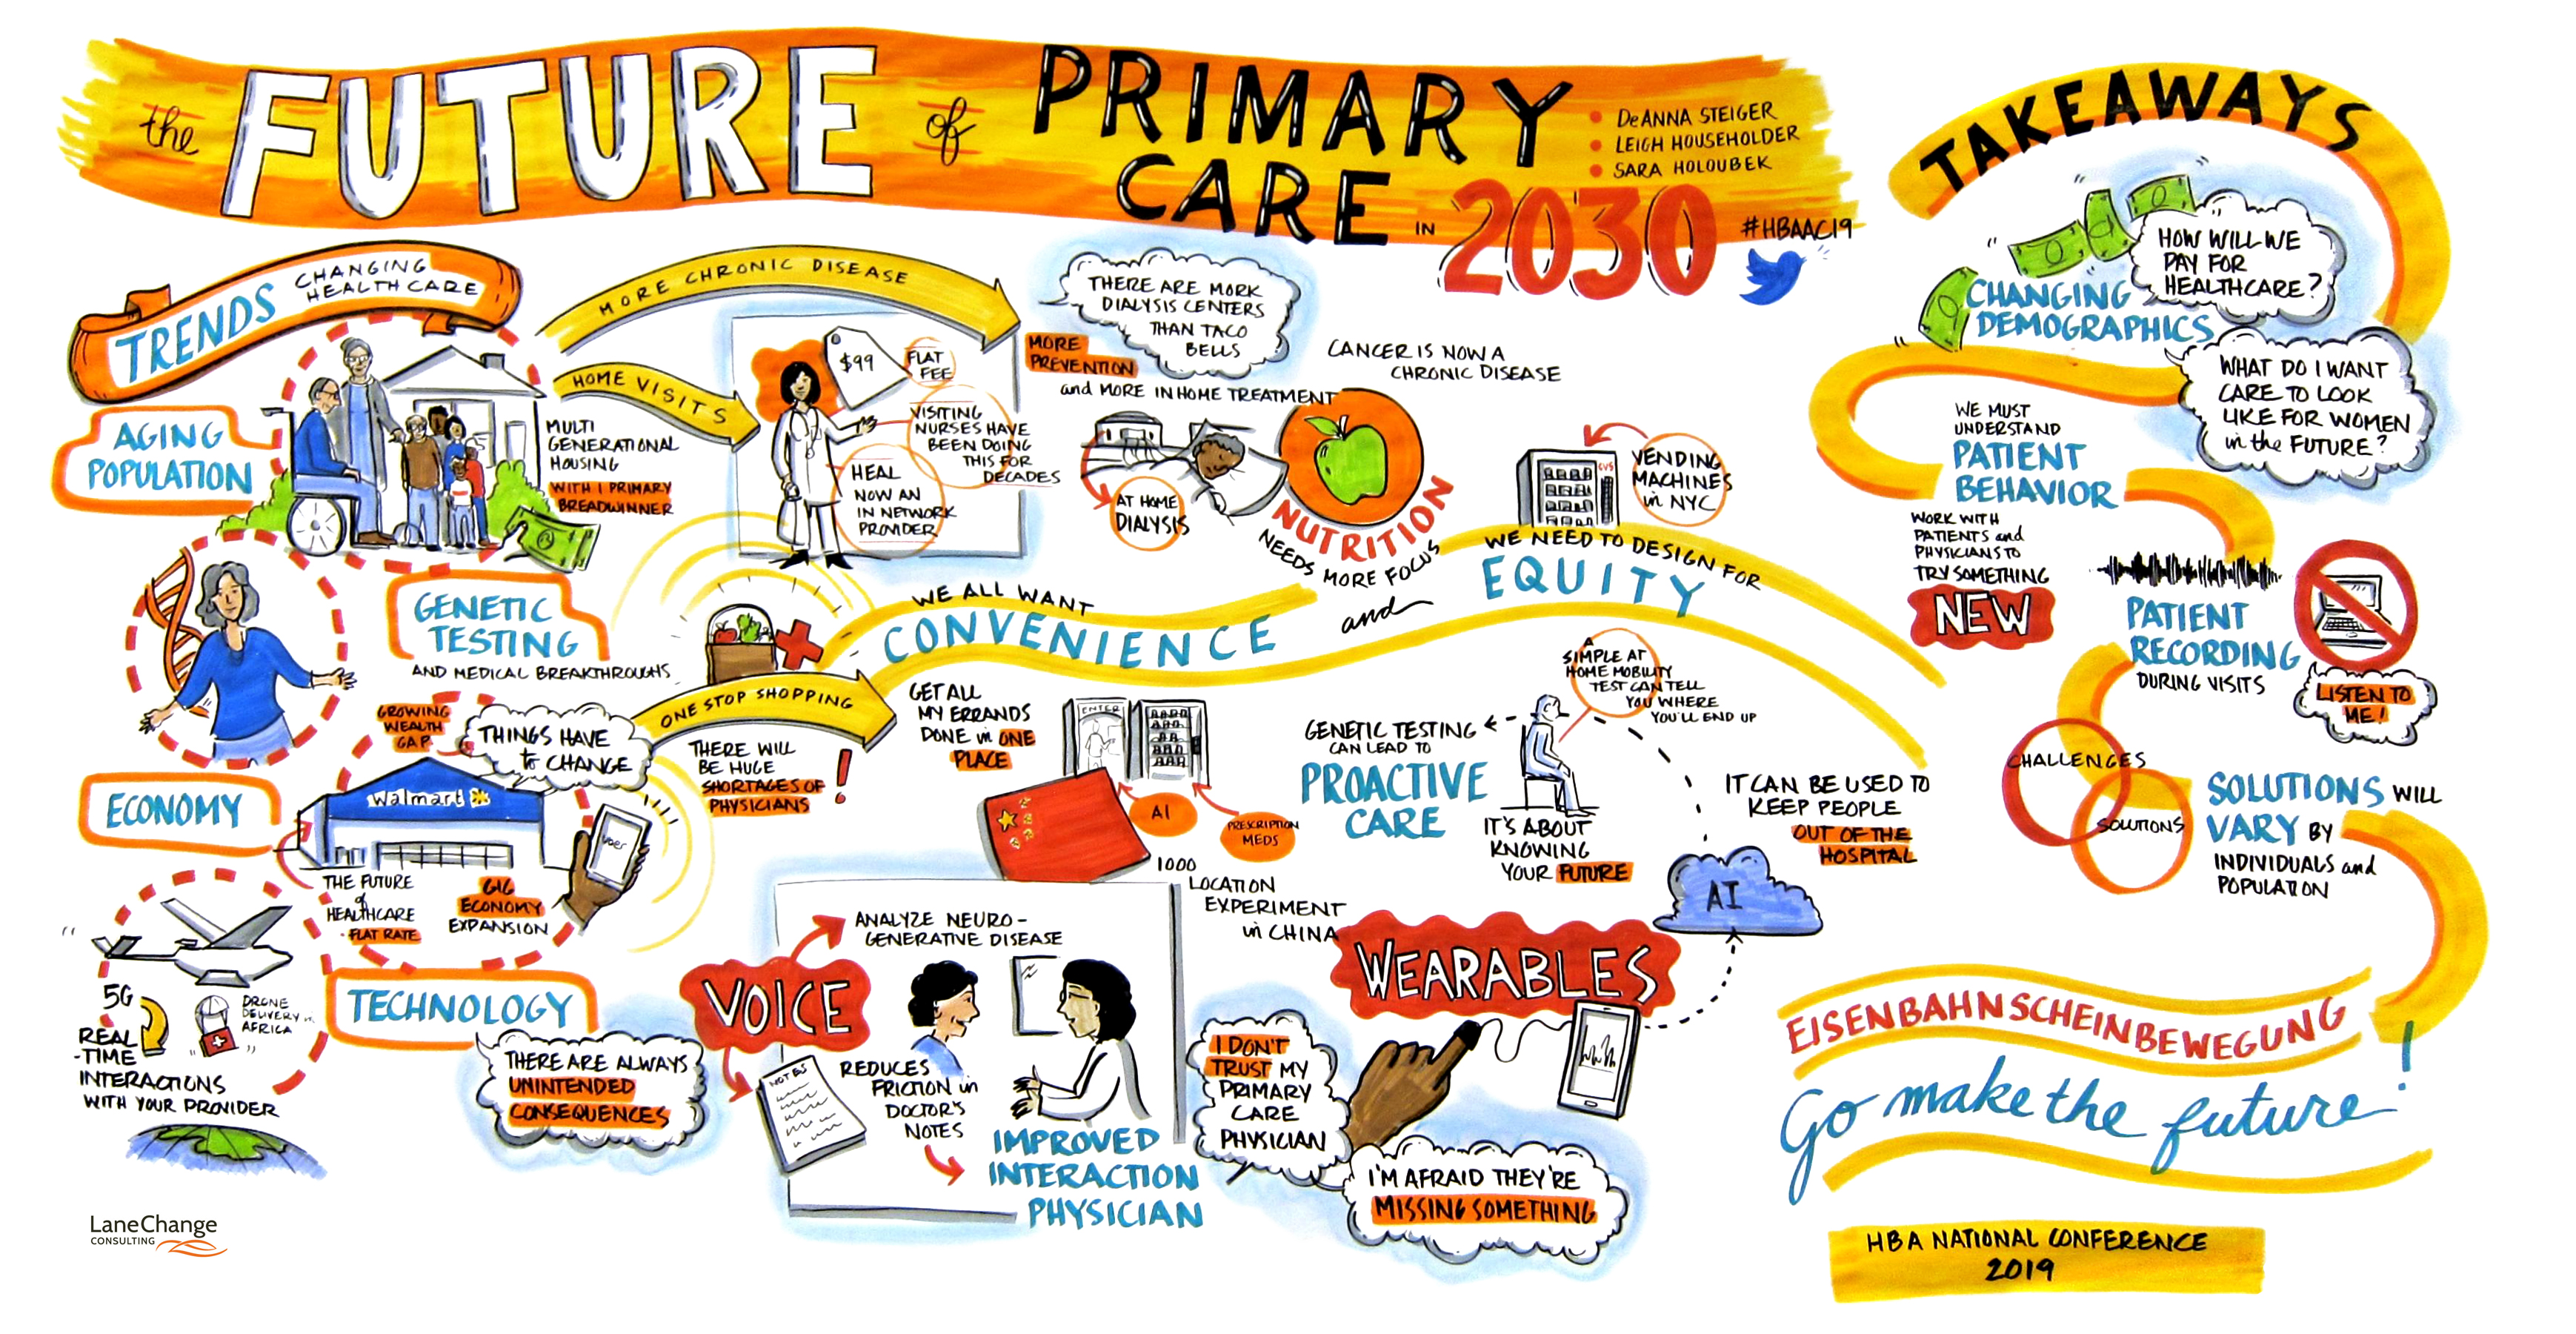 the FUTURE of PRIMARY
CARE IN 2030
• DeANNA STEIGER
• LEIGH HOUSEHOLDER
• SARA HOLOUBEK
#HBAAC19
TRENDS CHANGING
HEALTHCARE
AGING
POPULATION
MULTI
GENERATIONAL
HOUSING
WITH 1 PRIMARY
BREADWINNER
MORE CHRONIC DISEASE
HOME VISITS
$99
FLAT
FEE
VISITING
NURSES HAVE
BEEN DOING
THIS FOR
DECADES
HEAL
NOW AN
IN NETWORK
PROVIDER
THERE ARE MORK
DIALYSIS CENTERS
THAN TACO
BELLS
MORE
PREVENTION
and MORE IN HOME TREATMENT
AT HOME
DIALYSIS
CANCER IS NOW A
CHRONIC DISEASE
NUTRITION
NEEDS MORE FOCUS
CVS
VENDING
MACHINES
in NYC
GENETIC
TESTING
AND MEDICAL BREAKTHROUGHS
WE ALL WANT
CONVENIENCE
and
WE NEED TO DESIGN FOR
EQUITY
ECONOMY
GROWING
WEALTH
GAP
THINGS HAVE
to CHANGE
Walmart
THE FUTURE
of
HEALTHCARE
- FLAT RATE
GIG
ECONOMY
EXPANSION
UBER
ONE STOP SHOPPING
THERE WILL
BE HUGE
SHORTAGES OF
PHYSICIANS
!
GET ALL
MY ERRANDS
DONE in ONE
PLACE
ENTER
AI
PRESCRIPTION
MEDS
1000
LOCATION
EXPERIMENT
in CHINA
GENETIC TESTING
CAN LEAD TO
PROACTIVE
CARE
A
SIMPLE AT
HOME MOBILITY
TEST CAN TELL
YOU WHERE
YOU'LL END UP
IT'S ABOUT
KNOWING
YOUR FUTURE
IT CAN BE USED TO
KEEP PEOPLE
OUT OF THE
HOSPITAL
AI
WEARABLES
TECHNOLOGY
5G
REAL
-TIME
INTERACTIONS
WITH YOUR PROVIDER
DRONE
DELIVERY in
AFRICA
THERE ARE ALWAYS
UNINTENDED
CONSEQUENCES
VOICE
ANALYZE NEURO-
GENERATIVE DISEASE
NOTES
REDUCES
FRICTION in
DOCTOR'S
NOTES
IMPROVED
INTERACTION
PHYSICIAN
I DON'T
TRUST MY
PRIMARY
CARE
PHYSICIAN
I'M AFRAID THEY'RE
MISSING SOMETHING
TAKEAWAYS
HOW WILL WE
PAY FOR
HEALTHCARE?
CHANGING
DEMOGRAPHICS
WHAT DO I WANT
CARE TO LOOK
LIKE FOR WOMEN
in the FUTURE?
WE MUST
UNDERSTAND
PATIENT
BEHAVIOR
WORK WITH
PATIENTS and
PHYSICIANS TO
TRY SOMETHING
NEW
PATIENT
RECORDING
DURING VISITS
LISTEN TO
ME!
CHALLENGES
SOLUTIONS
SOLUTIONS WILL
VARY BY
INDIVIDUALS and
POPULATION
EISENBAHNSCHEINBEWEGUNG
Go make the future!
HBA NATIONAL CONFERENCE
2019
LaneChange
CONSULTING